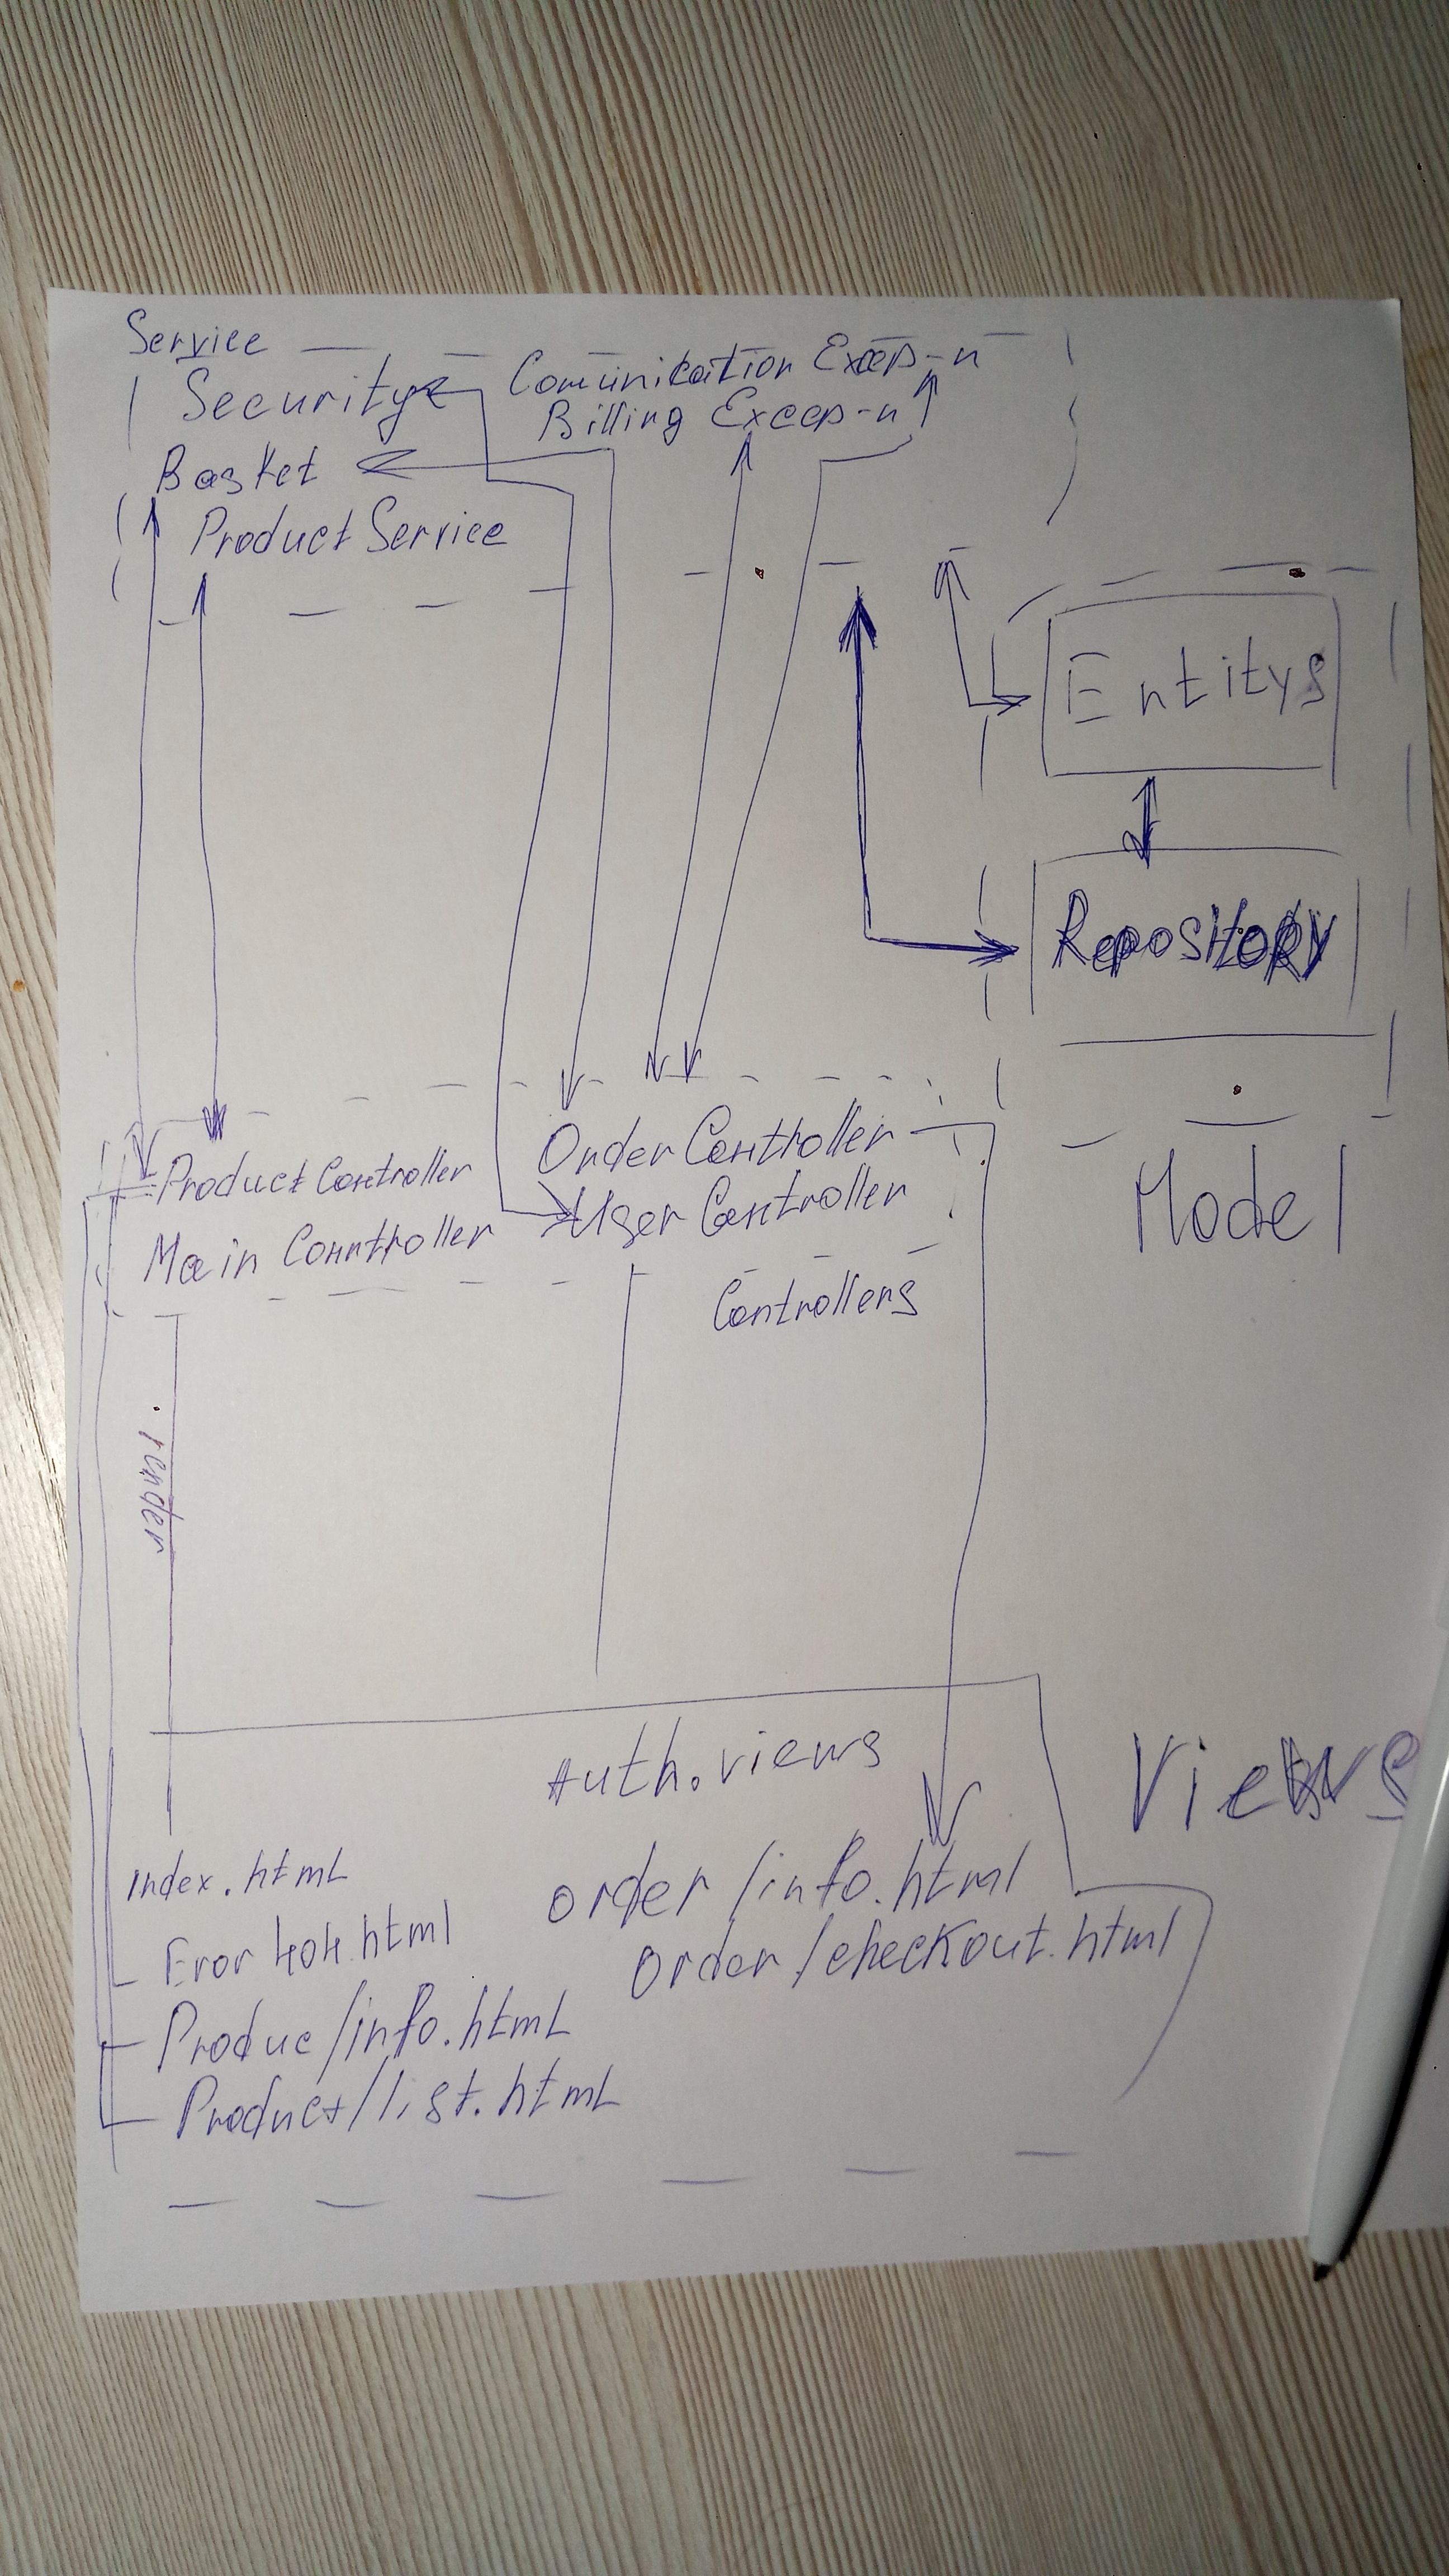 Service
Security
Comunikation Excep-n
Billing Excep-n
Basket
Product Service
Entitys
Repository
Model
Product Controller
Main Conntroller
Order Controller
User Controller
Controllers
render
Auth.views
Views
Index.html
Eror 404.html
Produc/info.html
Product/list.html
order/info.html
Order/checkout.html